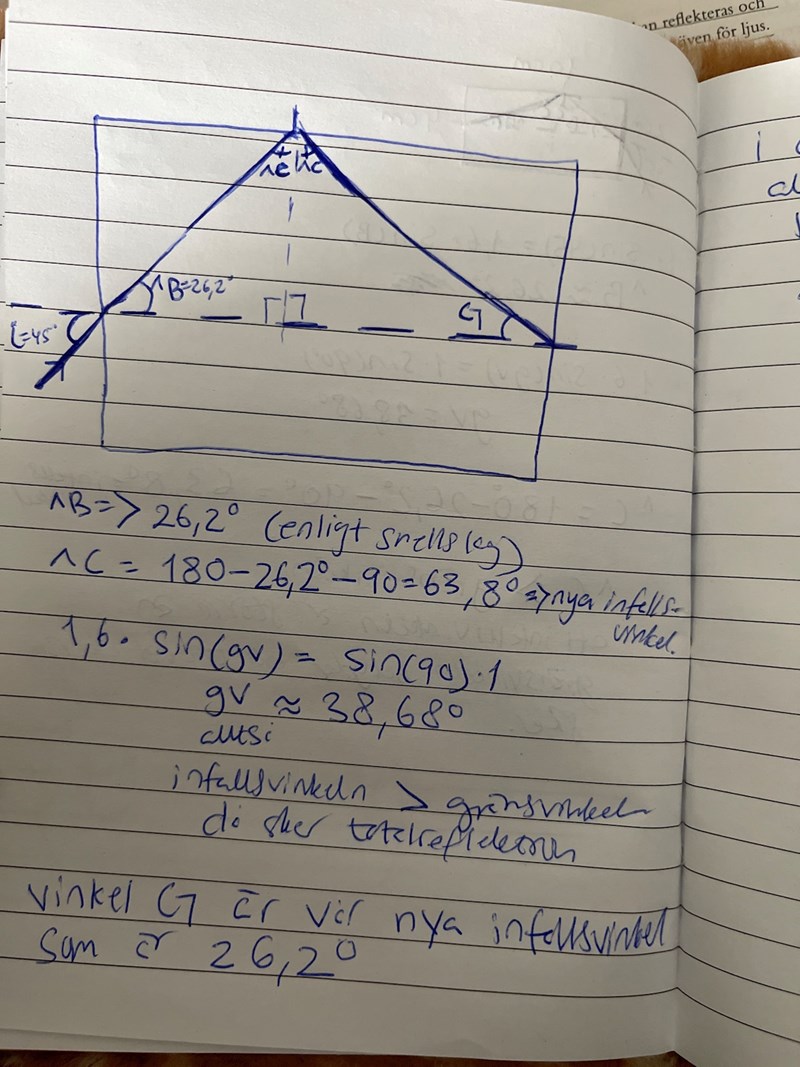 an reflekteras och
även för ljus.
^c ^c
^B=26,2°
i=45°
G
^B=> 26,2° (enligt snells lag)
^C = 180-26,2°-90=63,8° => nya infalls-
vinkel.
1,6 · sin(gv) = sin(90)·1
gv ≈ 38,68°
alltså
infallsvinkeln > gränsvinkeln
då sker totalreflektion
vinkel G är vår nya infallsvinkel
som är 26,2°